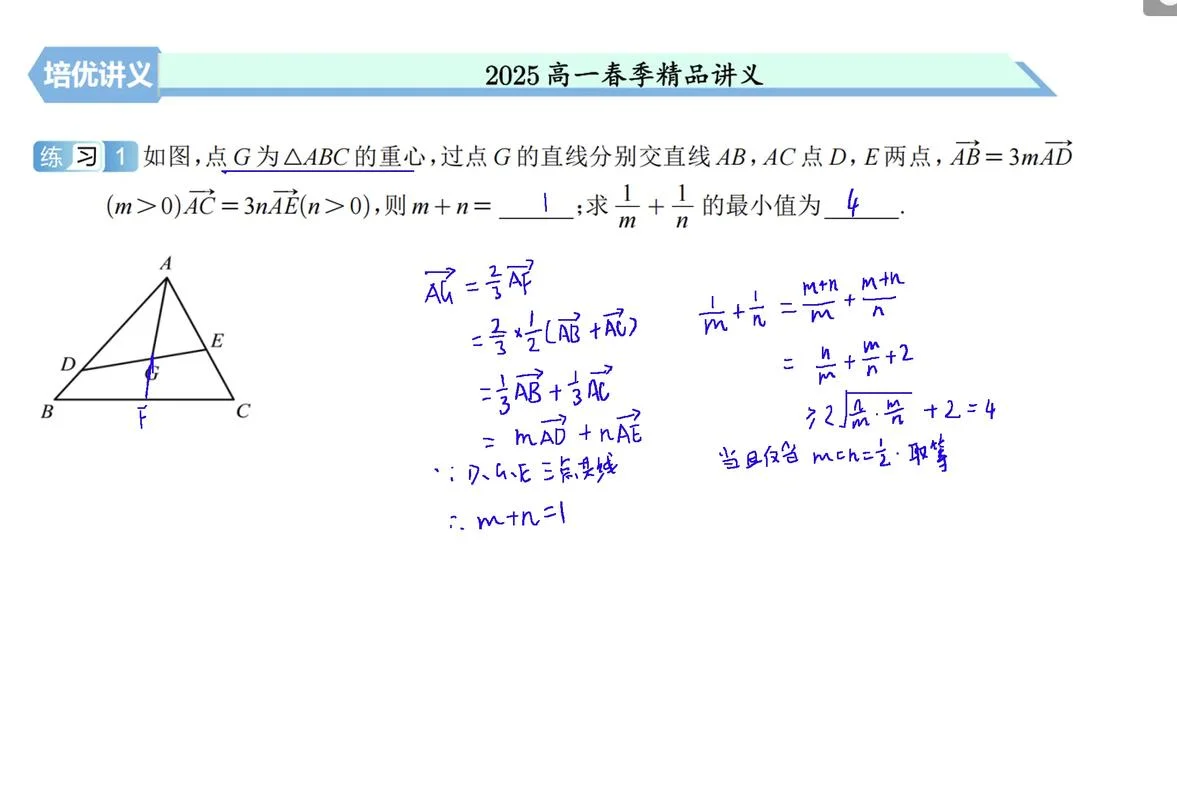 培优讲义
2025高一春季精品讲义
练习1 如图,点 G 为△ABC 的重心,过点 G 的直线分别交直线 AB,AC 点 D,E 两点,$\overrightarrow{AB}=3m\overrightarrow{AD}$
$(m>0)\overrightarrow{AC}=3n\overrightarrow{AE}(n>0)$,则 $m+n=$ 1 ;求 $\frac{1}{m}+\frac{1}{n}$ 的最小值为 4 .
A
D
E
G
B
F
C
$\overrightarrow{AG}=\frac{2}{3}\overrightarrow{AF}$
$=\frac{2}{3}\times\frac{1}{2}(\overrightarrow{AB}+\overrightarrow{AC})$
$=\frac{1}{3}\overrightarrow{AB}+\frac{1}{3}\overrightarrow{AC}$
$=m\overrightarrow{AD}+n\overrightarrow{AE}$
∵ D、G、E 三点共线
∴ m+n=1
$\frac{1}{m}+\frac{1}{n}=\frac{m+n}{m}+\frac{m+n}{n}$
$=\frac{n}{m}+\frac{m}{n}+2$
$\geqslant 2\sqrt{\frac{n}{m}\cdot\frac{m}{n}}+2=4$
当且仅当 $m=n=\frac{1}{2}$. 取等